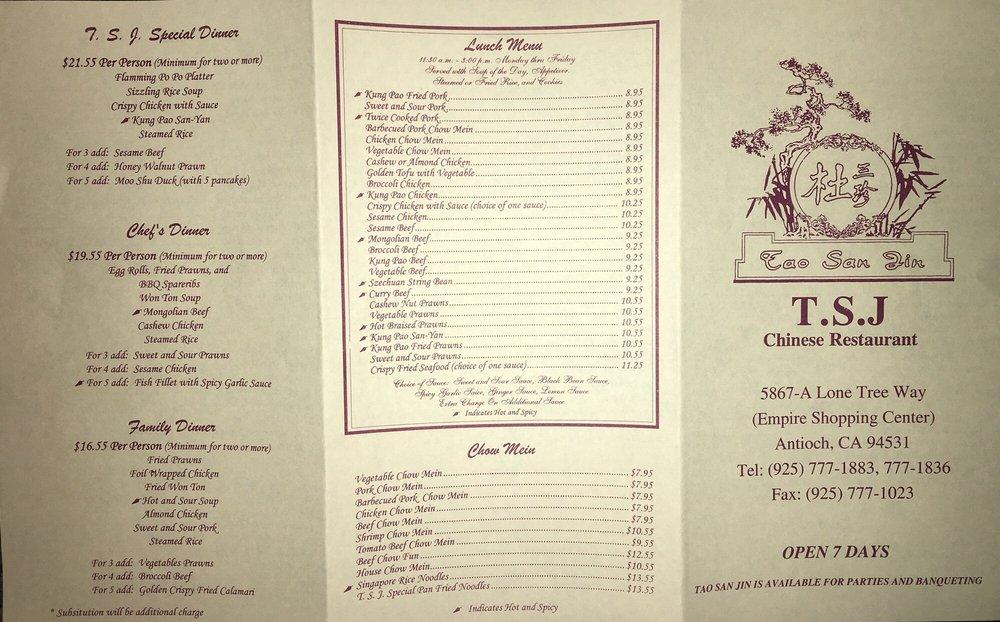 T. S. J. Special Dinner
$21.55 Per Person (Minimum for two or more)
Flamming Po Po Platter
Sizzling Rice Soup
Crispy Chicken with Sauce
Kung Pao San-Yan
Steamed Rice
For 3 add: Sesame Beef
For 4 add: Honey Walnut Prawn
For 5 add: Moo Shu Duck (with 5 pancakes)
Chef's Dinner
$19.55 Per Person (Minimum for two or more)
Egg Rolls, Fried Prawns, and
BBQ Spareribs
Won Ton Soup
Mongolian Beef
Cashew Chicken
Steamed Rice
For 3 add: Sweet and Sour Prawns
For 4 add: Sesame Chicken
For 5 add: Fish Fillet with Spicy Garlic Sauce
Family Dinner
$16.55 Per Person (Minimum for two or more)
Fried Prawns
Foil Wrapped Chicken
Fried Won Ton
Hot and Sour Soup
Almond Chicken
Sweet and Sour Pork
Steamed Rice
For 3 add: Vegetables Prawns
For 4 add: Broccoli Beef
For 5 add: Golden Crispy Fried Calamari
* Subsitution will be additional charge
Lunch Menu
11:30 a.m. - 3:00 p.m. Monday thru Friday
Served with Soup of the Day, Appetizer,
Steamed or Fried Rice, and Cookies
Kung Pao Fried Pork 8.95
Sweet and Sour Pork 8.95
Twice Cooked Pork 8.95
Barbecued Pork Chow Mein 8.95
Chicken Chow Mein 8.95
Vegetable Chow Mein 8.95
Cashew or Almond Chicken 8.95
Golden Tofu with Vegetable 8.95
Broccoli Chicken 8.95
Kung Pao Chicken 8.95
Crispy Chicken with Sauce (choice of one sauce) 10.25
Sesame Chicken 10.25
Sesame Beef 10.25
Mongolian Beef 9.25
Broccoli Beef 9.25
Kung Pao Beef 9.25
Vegetable Beef 9.25
Szechuan String Bean 9.25
Curry Beef 9.25
Cashew Nut Prawns 10.55
Vegetable Prawns 10.55
Hot Braised Prawns 10.55
Kung Pao San-Yan 10.55
Kung Pao Fried Prawns 10.55
Sweet and Sour Prawns 10.55
Crispy Fried Seafood (choice of one sauce) 11.25
Choice of Sauce: Sweet and Sour Sauce, Black Bean Sauce,
Spicy Garlic Saice, Ginger Sauce, Lemon Sauce
Extra Charge On Additional Sauce
Indicates Hot and Spicy
Chow Mein
Vegetable Chow Mein $7.95
Pork Chow Mein $7.95
Barbecued Pork Chow Mein $7.95
Chicken Chow Mein $7.95
Beef Chow Mein $7.95
Shrimp Chow Mein $10.55
Tomato Beef Chow Mein $9.55
Beef Chow Fun $12.55
House Chow Mein $10.55
Singapore Rice Noodles $13.55
T. S. J. Special Pan Fried Noodles $13.55
Indicates Hot and Spicy
杜三珍
Tao San Jin
T.S.J
Chinese Restaurant
5867-A Lone Tree Way
(Empire Shopping Center)
Antioch, CA 94531
Tel: (925) 777-1883, 777-1836
Fax: (925) 777-1023
OPEN 7 DAYS
TAO SAN JIN IS AVAILABLE FOR PARTIES AND BANQUETING